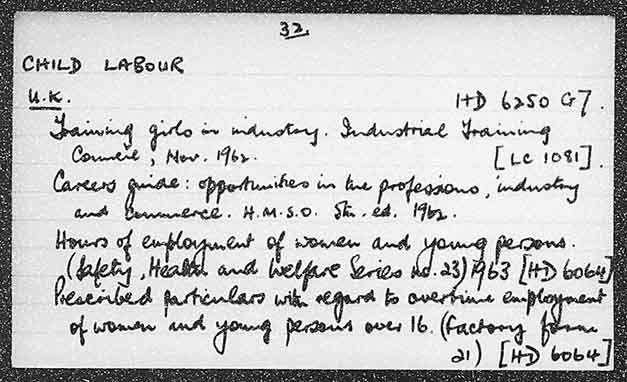 32.
CHILD LABOUR
U.K. HD 6250 G7.
Training girls in industry. Industrial Training
Council, Nov. 1962. [LC 1081].
Careers guide: opportunities in the professions, industry
and commerce. H.M.S.O. 5th. ed. 1962.
Hours of employment of women and young persons.
(Safety, Health and Welfare Series no. 23) 1963 [HD 6064]
Prescribed particulars with regard to overtime employment
of women and young persons over 16. (Factory form
21) [HD 6064]